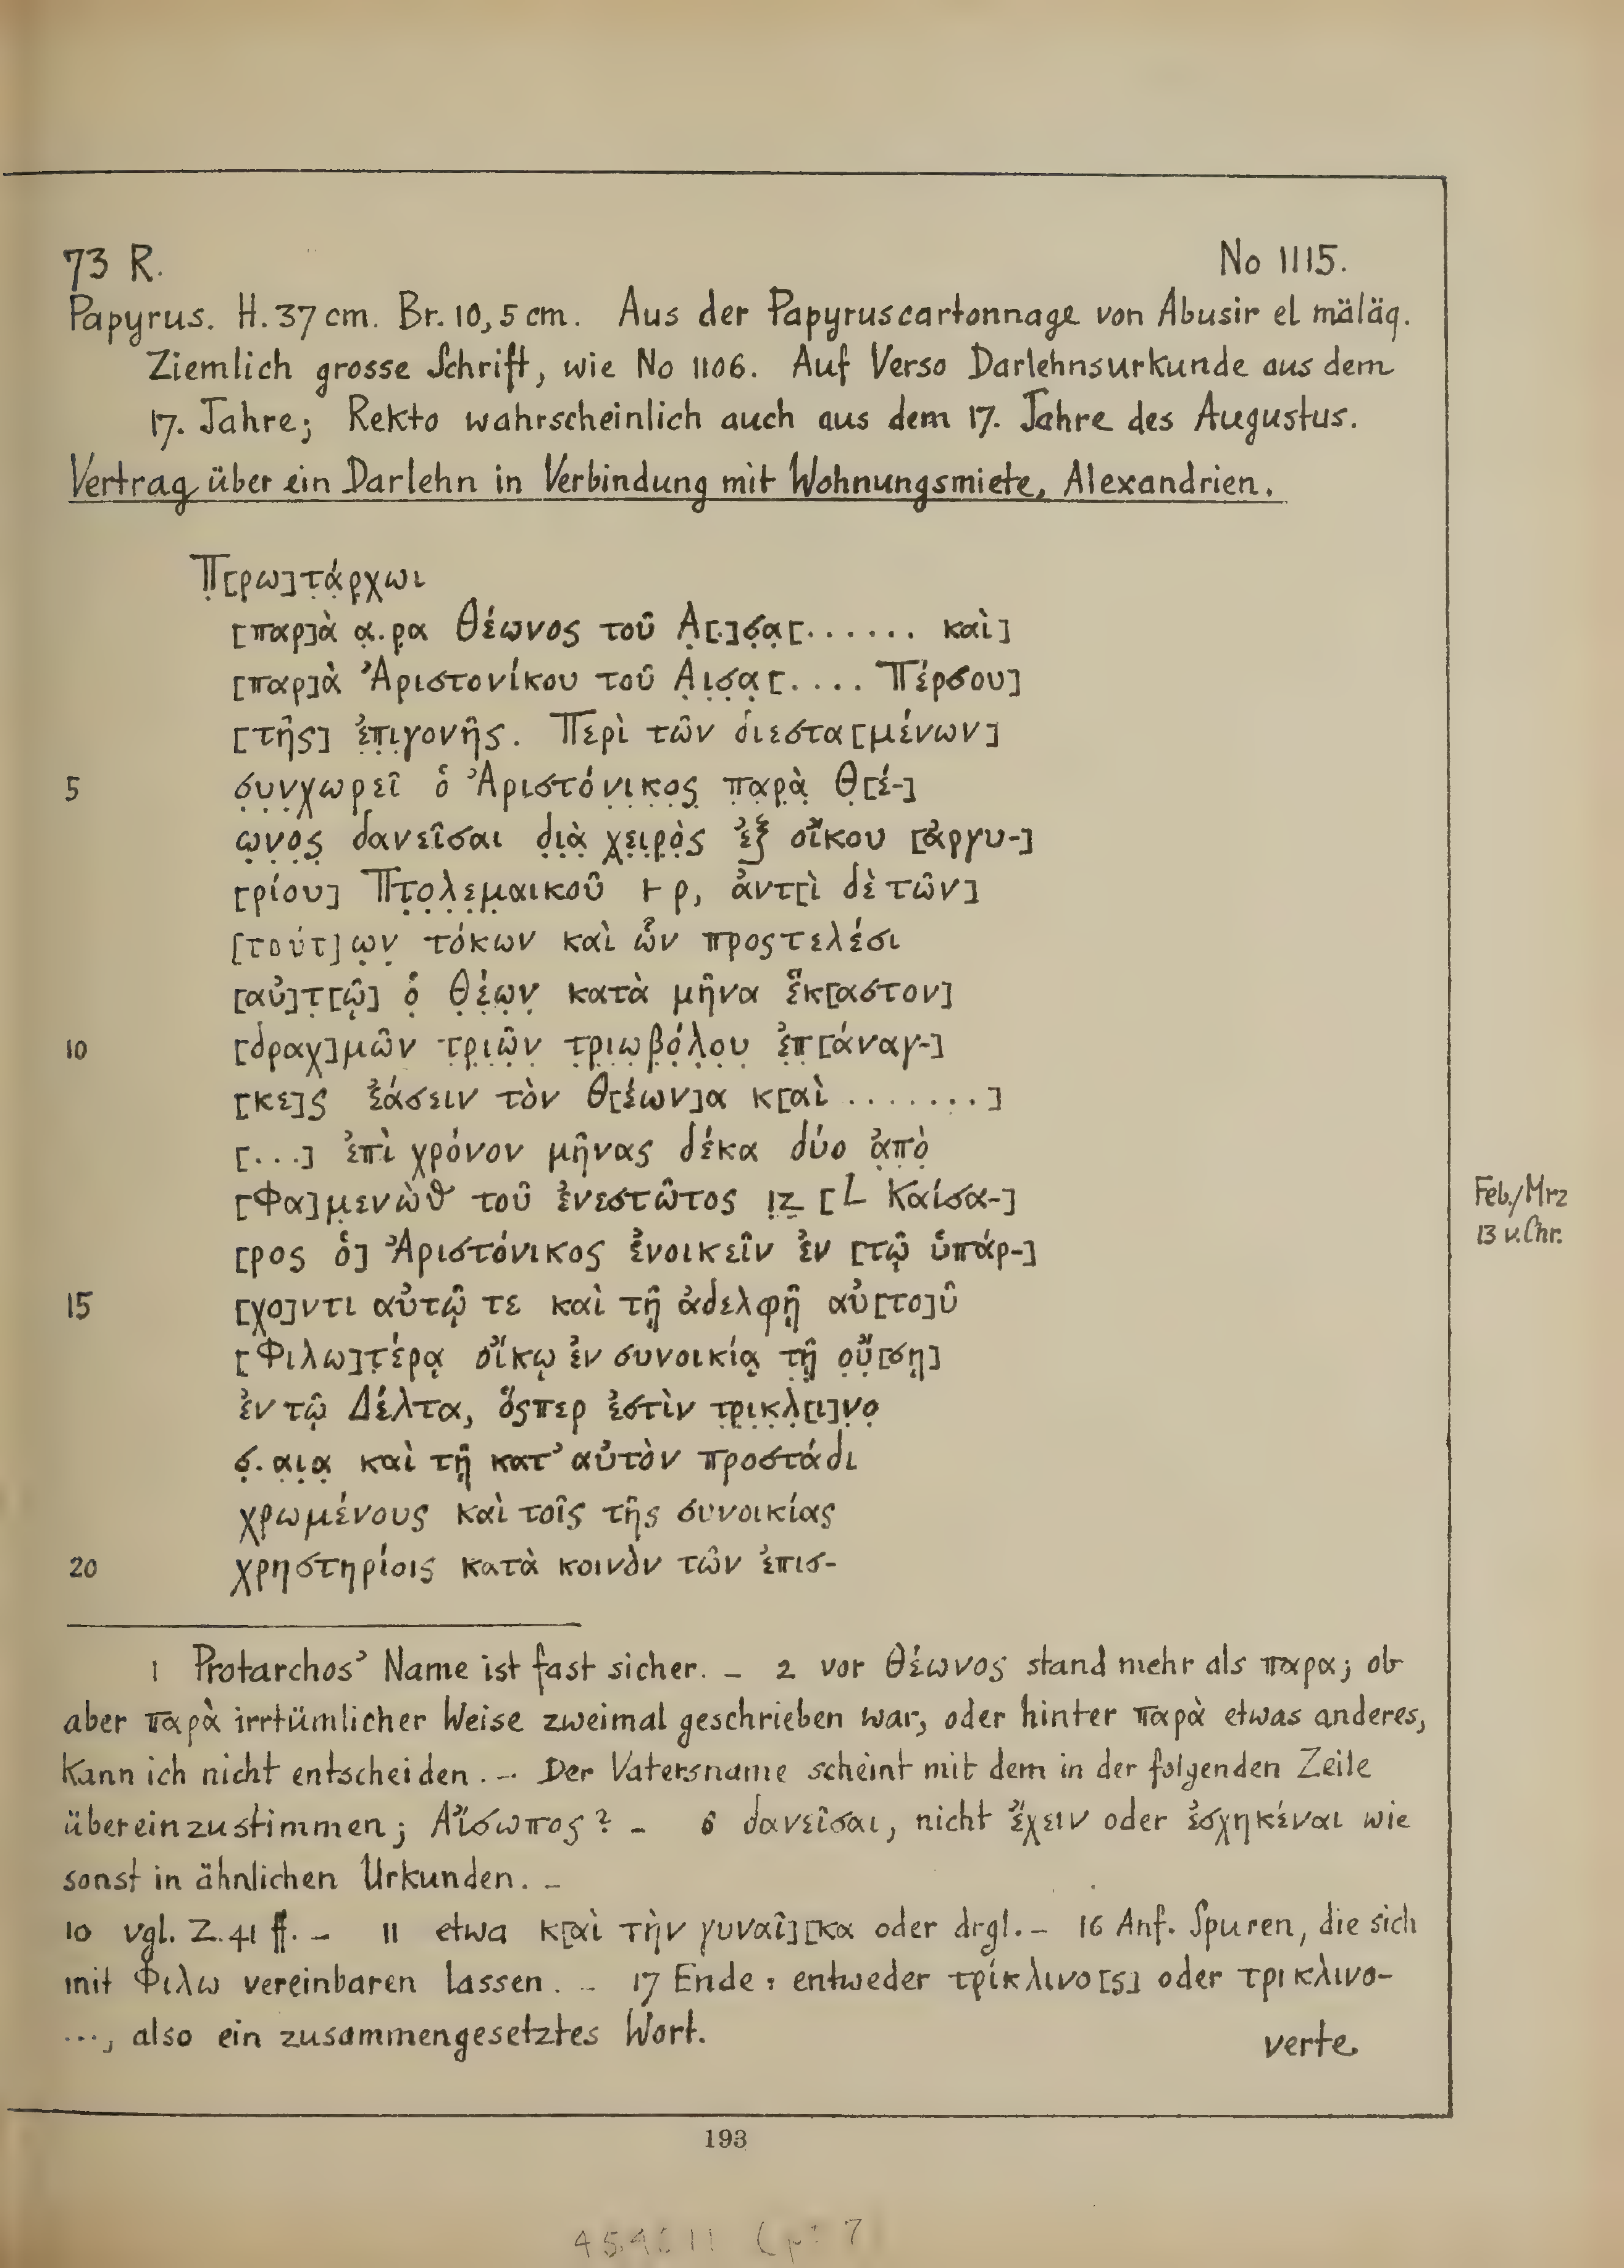 73 R. No 1115.
Papyrus. H. 37 cm. Br. 10,5 cm. Aus der Papyruscartonnage von Abusir el mäläq.
Ziemlich grosse Schrift, wie No 1106. Auf Verso Darlehnsurkunde aus dem
17. Jahre; Rekto wahrscheinlich auch aus dem 17. Jahre des Augustus.
Vertrag über ein Darlehn in Verbindung mit Wohnungsmiete, Alexandrien.
Π̣[ρω]τ̣ά̣ρ̣χωι
[παρ]ὰ α̣.ρ̣α Θέωνος τοῦ Α̣[.]σ̣α̣[...... καὶ]
[παρ]ὰ Ἀριστονίκου τοῦ Α̣ι̣σ̣α̣[.... Πέρσου]
[τῆς] ἐ̣π̣ι̣γονῆς. Περὶ τῶν διεστα[μένων]
5 σ̣υ̣ν̣χωρεῖ ὁ Ἀριστόν̣ι̣κ̣ο̣ς̣ π̣α̣ρ̣ὰ̣ Θ̣[έ-]
ω̣ν̣ο̣ς̣ δανεῖσαι δ̣ι̣ὰ̣ χ̣ε̣ι̣ρ̣ὸ̣ς ἐξ οἴκου [ἀργυ-]
[ρίου] Πτ̣ο̣λ̣ε̣μ̣αικοῦ 𐅂 ρ, ἀντ[ὶ δὲ τῶν]
[τούτ]ω̣ν̣ τόκων καὶ ὧν προςτελέσι
[αὐ]τ̣[ῷ] ὁ̣ Θ̣έ̣ω̣ν̣ κατὰ μῆνα ἕκ[αστον]
10 [δραχ]μῶν τ̣ρ̣ι̣ῶ̣ν̣ τ̣ρ̣ι̣ω̣β̣ό̣λ̣ο̣υ̣ ἐ̣π̣[άναγ-]
[κε]ς ἐάσειν τὸν Θ[έων]α κ[αὶ .......]
[...] ἐπὶ χρόνον μῆνας δέκα δύο ἀ̣π̣ὸ̣
[Φα]μ̣ενὼθ τοῦ ἐνεστῶτος ι̣ζ̣ [L Καίσα-]
Feb./Mrz
13 v. Chr.
[ρος ὁ] Ἀριστόνικος ἐνοικεῖν ἐν [τῷ ὑπάρ-]
15 [χο]ντι αὐτῷ τε καὶ τῇ ἀδελφῇ αὐ[το]ῦ
[Φιλω]τ̣έρᾳ οἴκῳ ἐν συνοικίᾳ τ̣ῇ̣ ο̣ὔ̣[σῃ]
ἐν τῷ Δέλτα, ὅςπερ ἐστὶν τ̣ρ̣ι̣κ̣λ̣[ι]ν̣ο̣
σ̣.α̣ι̣α̣ καὶ τῇ κατ' αὐτὸν προστάδι
χρωμένους καὶ τοῖς τῆς συνοικίας
20 χρηστηρίοις κατὰ κοινὸν τῶν ἐπισ-
1 Protarchos' Name ist fast sicher. – 2 vor Θέωνος stand mehr als παρα; ob
aber παρὰ irrtümlicher Weise zweimal geschrieben war, oder hinter παρὰ etwas anderes,
kann ich nicht entscheiden. – Der Vatersname scheint mit dem in der folgenden Zeile
übereinzustimmen; Αἴσωπος? – 6 δανεῖσαι, nicht ἔχειν oder ἐσχηκέναι wie
sonst in ähnlichen Urkunden. –
10 vgl. Z. 41 ff. – 11 etwa κ[αὶ τὴν γυναῖ][κα oder drgl. – 16 Anf. Spuren, die sich
mit Φιλω vereinbaren lassen. – 17 Ende: entweder τρίκλινο[ς] oder τρικλινο-
..., also ein zusammengesetztes Wort. verte.
193